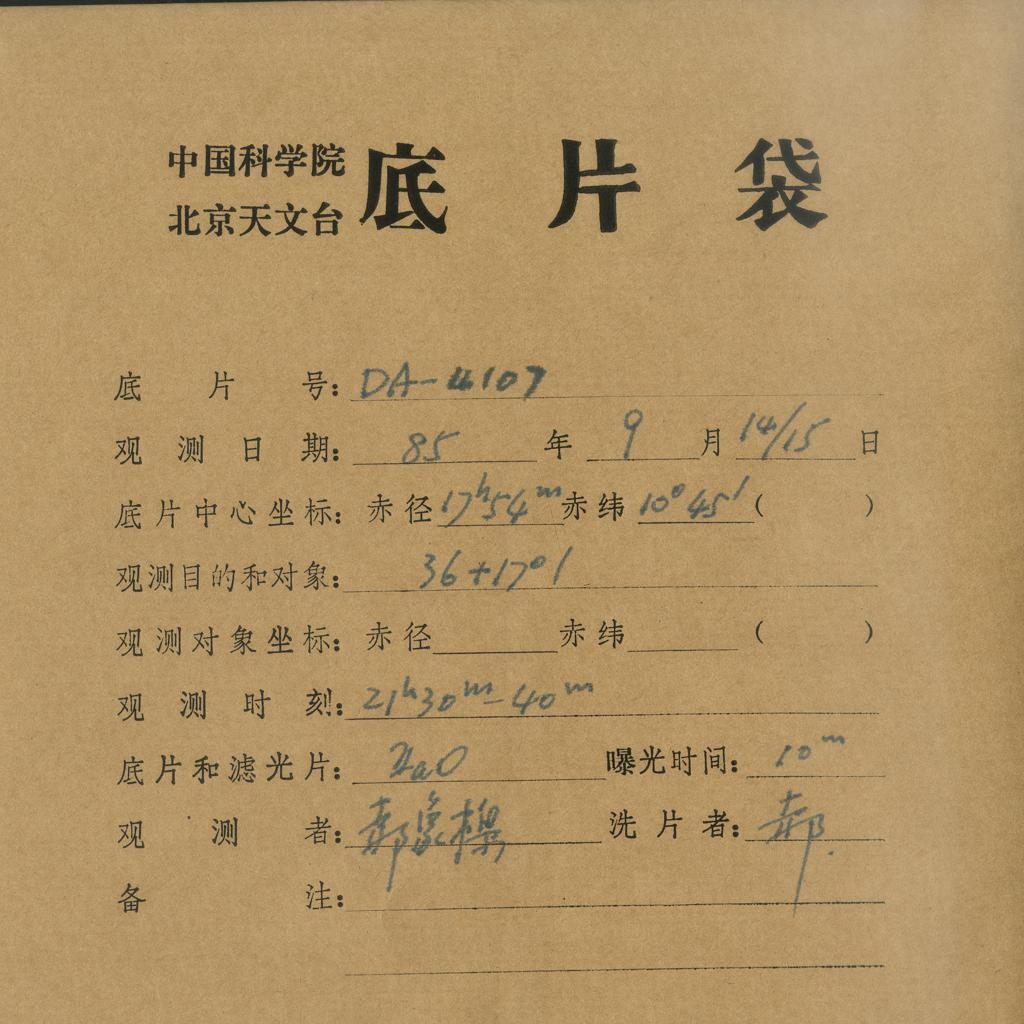 中国科学院
北京天文台
底片袋
底片号: DA-4107
观测日期: 85 年 9 月 14/15 日
底片中心坐标: 赤径 17ʰ54ᵐ 赤纬 10°45′ ( )
观测目的和对象: 36+17°1
观测对象坐标: 赤径 赤纬 ( )
观测时刻: 21ʰ30ᵐ-40ᵐ
底片和滤光片: ⅡaO 曝光时间: 10ᵐ
观测者: 郝象樑 洗片者: 郝.
备注: